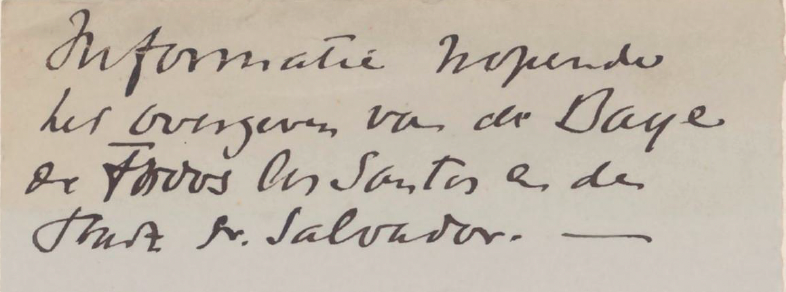 Informatie nopende
het overgeven van de Baye
de Todos los Santos en de
Stadt St. Salvador. —